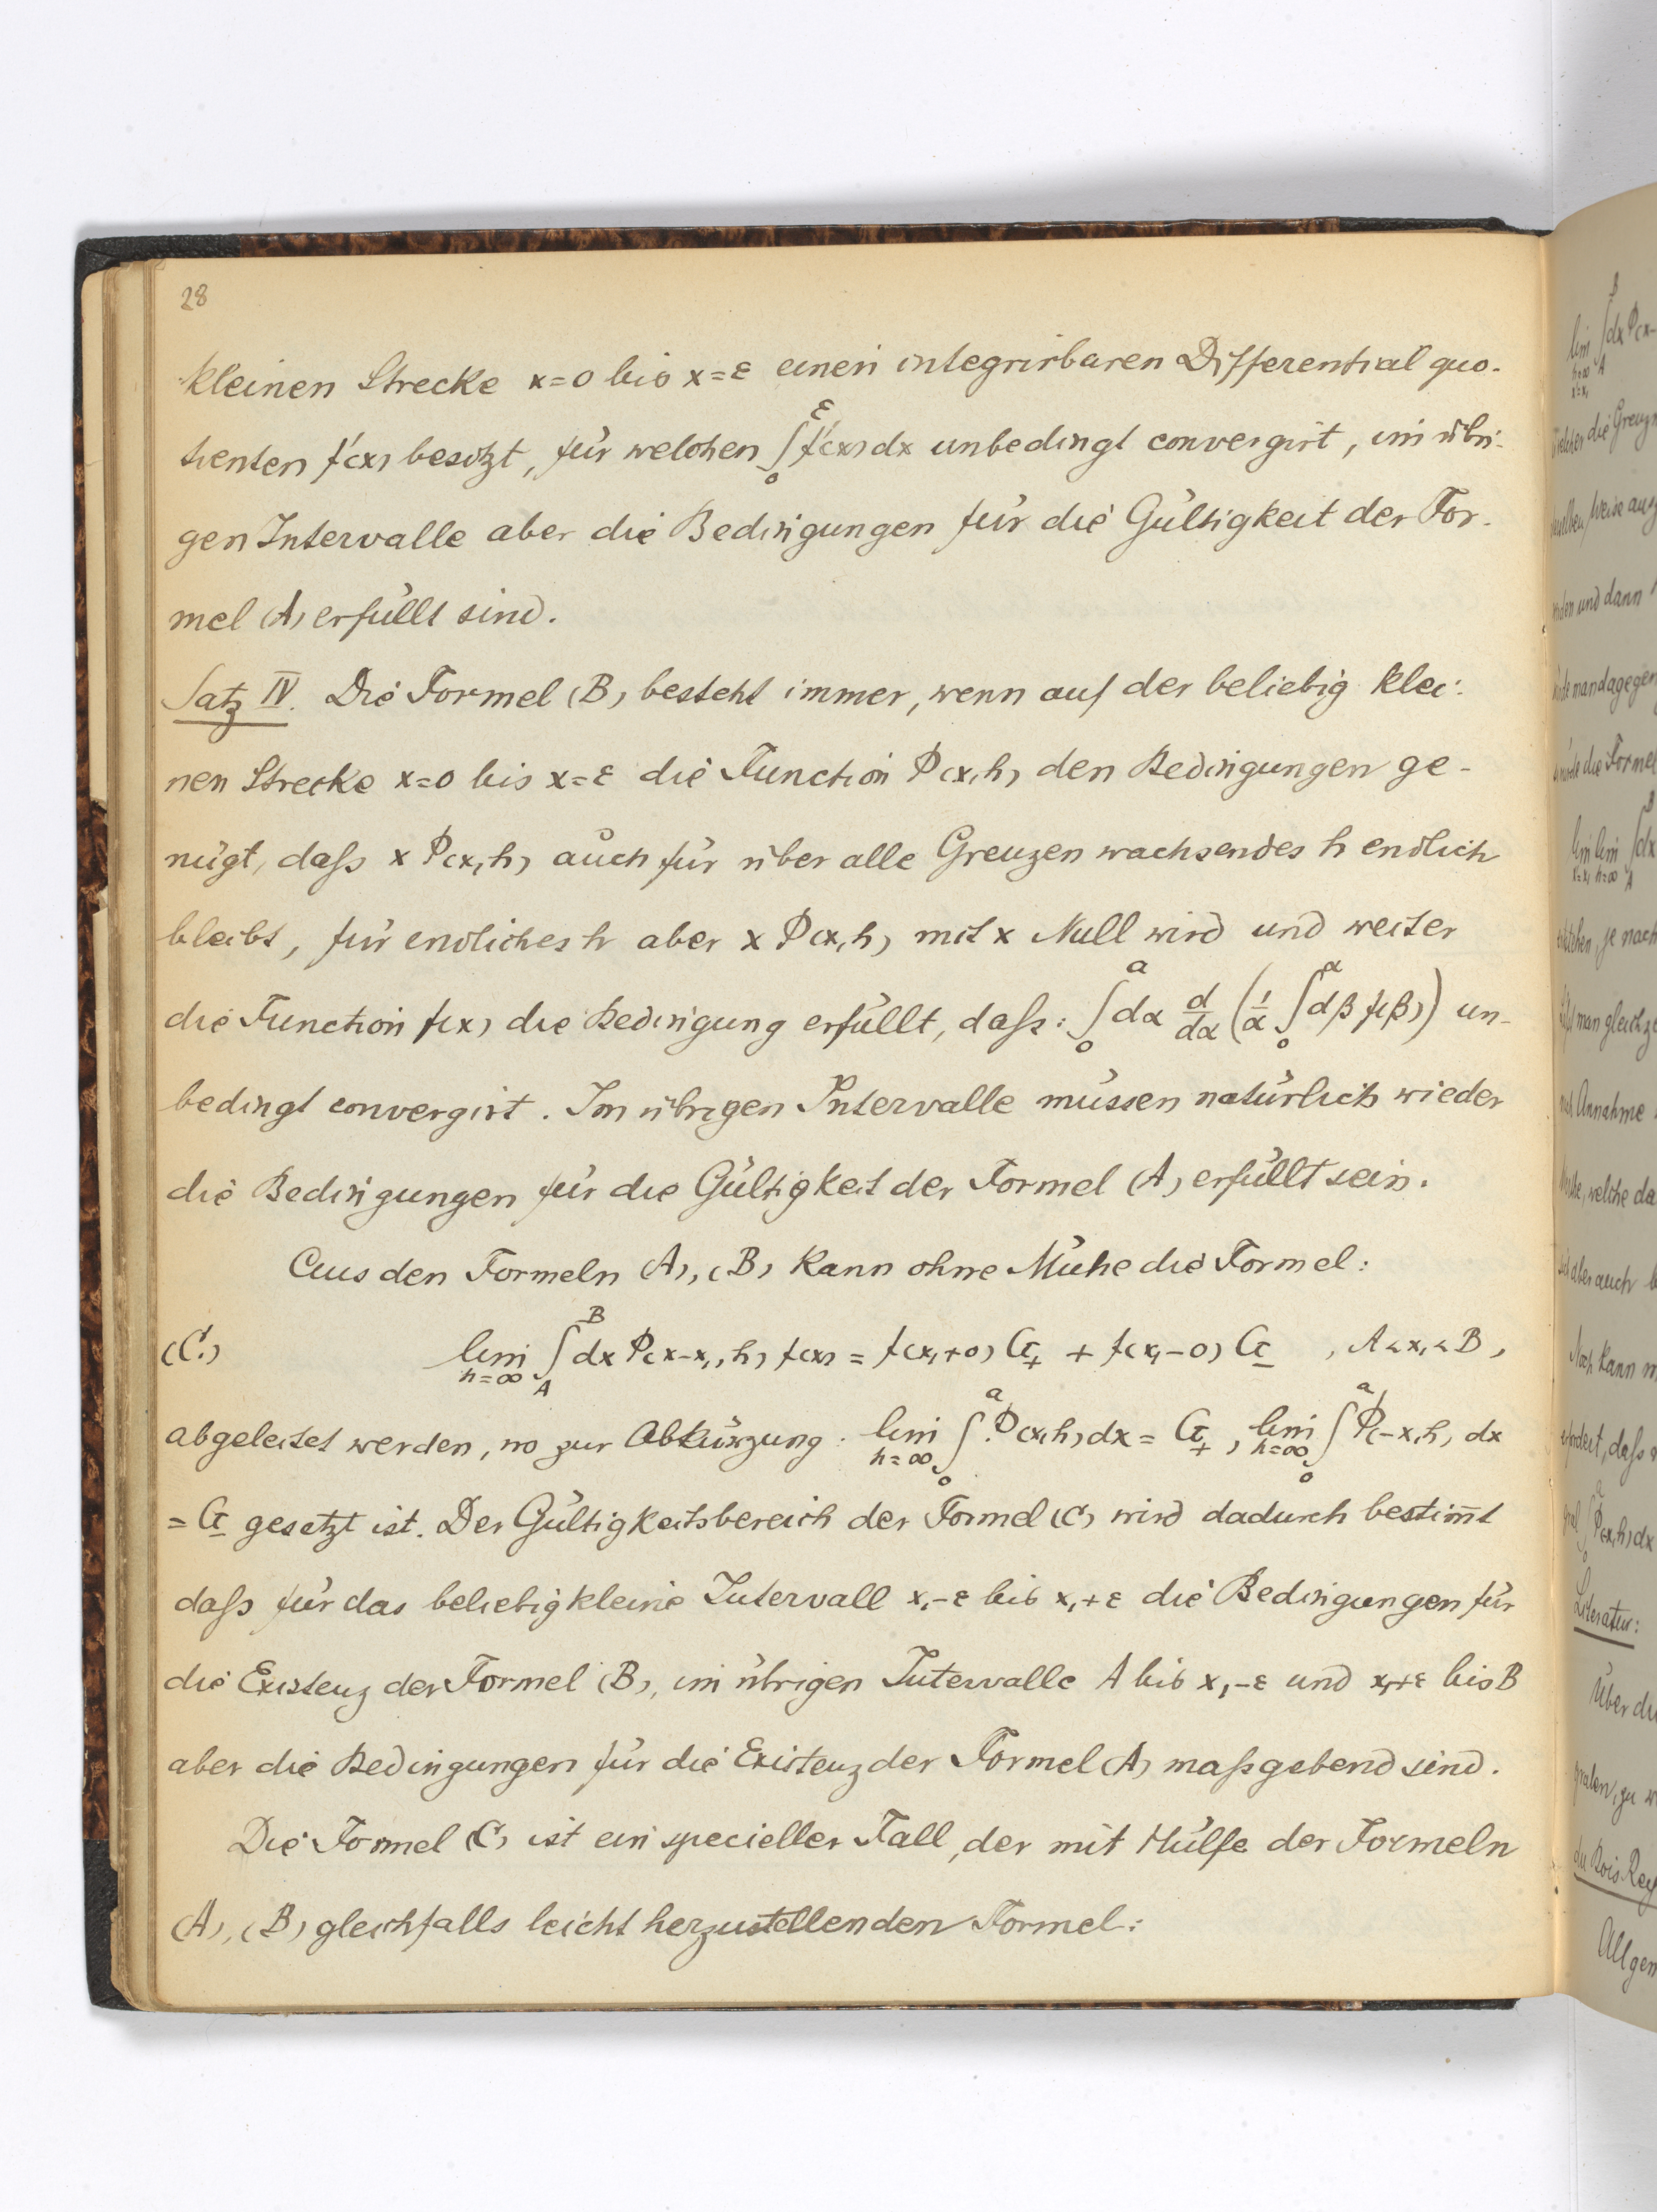 28
kleinen Strecke x=0 bis x=ε einen integrirbaren Differentialquo-
tienten f'(x) besitzt, für welchen ∫₀^ε f'(x) dx unbedingt convergirt, im übri-
gen Intervalle aber die Bedingungen für die Gültigkeit der For-
mel (A) erfüllt sind.
Satz IV. Die Formel (B) besteht immer, wenn auf der beliebig klei-
nen Strecke x=0 bis x=ε die Function Φ(x,h) den Bedingungen ge-
nügt, daſs x Φ(x,h) auch für über alle Grenzen wachsendes h endlich
bleibt, für endliches h aber x Φ(x,h) mit x Null wird und weiter
die Function f(x) die Bedingung erfüllt, daſs: ∫₀^a dα d/dα (1/α ∫₀^α dβ f(β)) un-
bedingt convergirt. Im übrigen Intervalle müssen natürlich wieder
die Bedingungen für die Gültigkeit der Formel (A) erfüllt sein.
Aus den Formeln (A), (B) kann ohne Mühe die Formel:
(C.) lim_{h=∞} ∫_A^B dx Φ(x-x₁, h) f(x) = f(x₁+0) G₊ + f(x₁-0) G₋ , A<x₁<B,
abgeleitet werden, wo zur Abkürzung: lim_{h=∞} ∫₀^a Φ(x,h) dx = G₊, lim_{h=∞} ∫₀^a Φ(-x,h) dx
= G₋ gesetzt ist. Der Gültigkeitsbereich der Formel (C) wird dadurch bestim̅t
daſs für das beliebig kleine Intervall x₁-ε bis x₁+ε die Bedingungen für
die Existenz der Formel (B), im übrigen Intervalle A bis x₁-ε und x₁+ε bis B
aber die Bedingungen für die Existenz der Formel (A) maſsgebend sind.
Die Formel (C) ist ein specieller Fall, der mit Hülfe der Formeln
(A), (B) gleichfalls leicht herzustellenden Formel:
Literatur:
Über